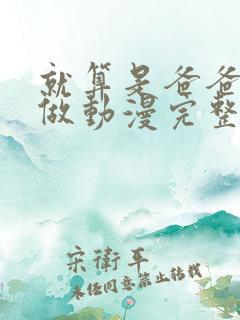 就算是爸爸
做動漫完整
宋衛平
未经同意禁止转载